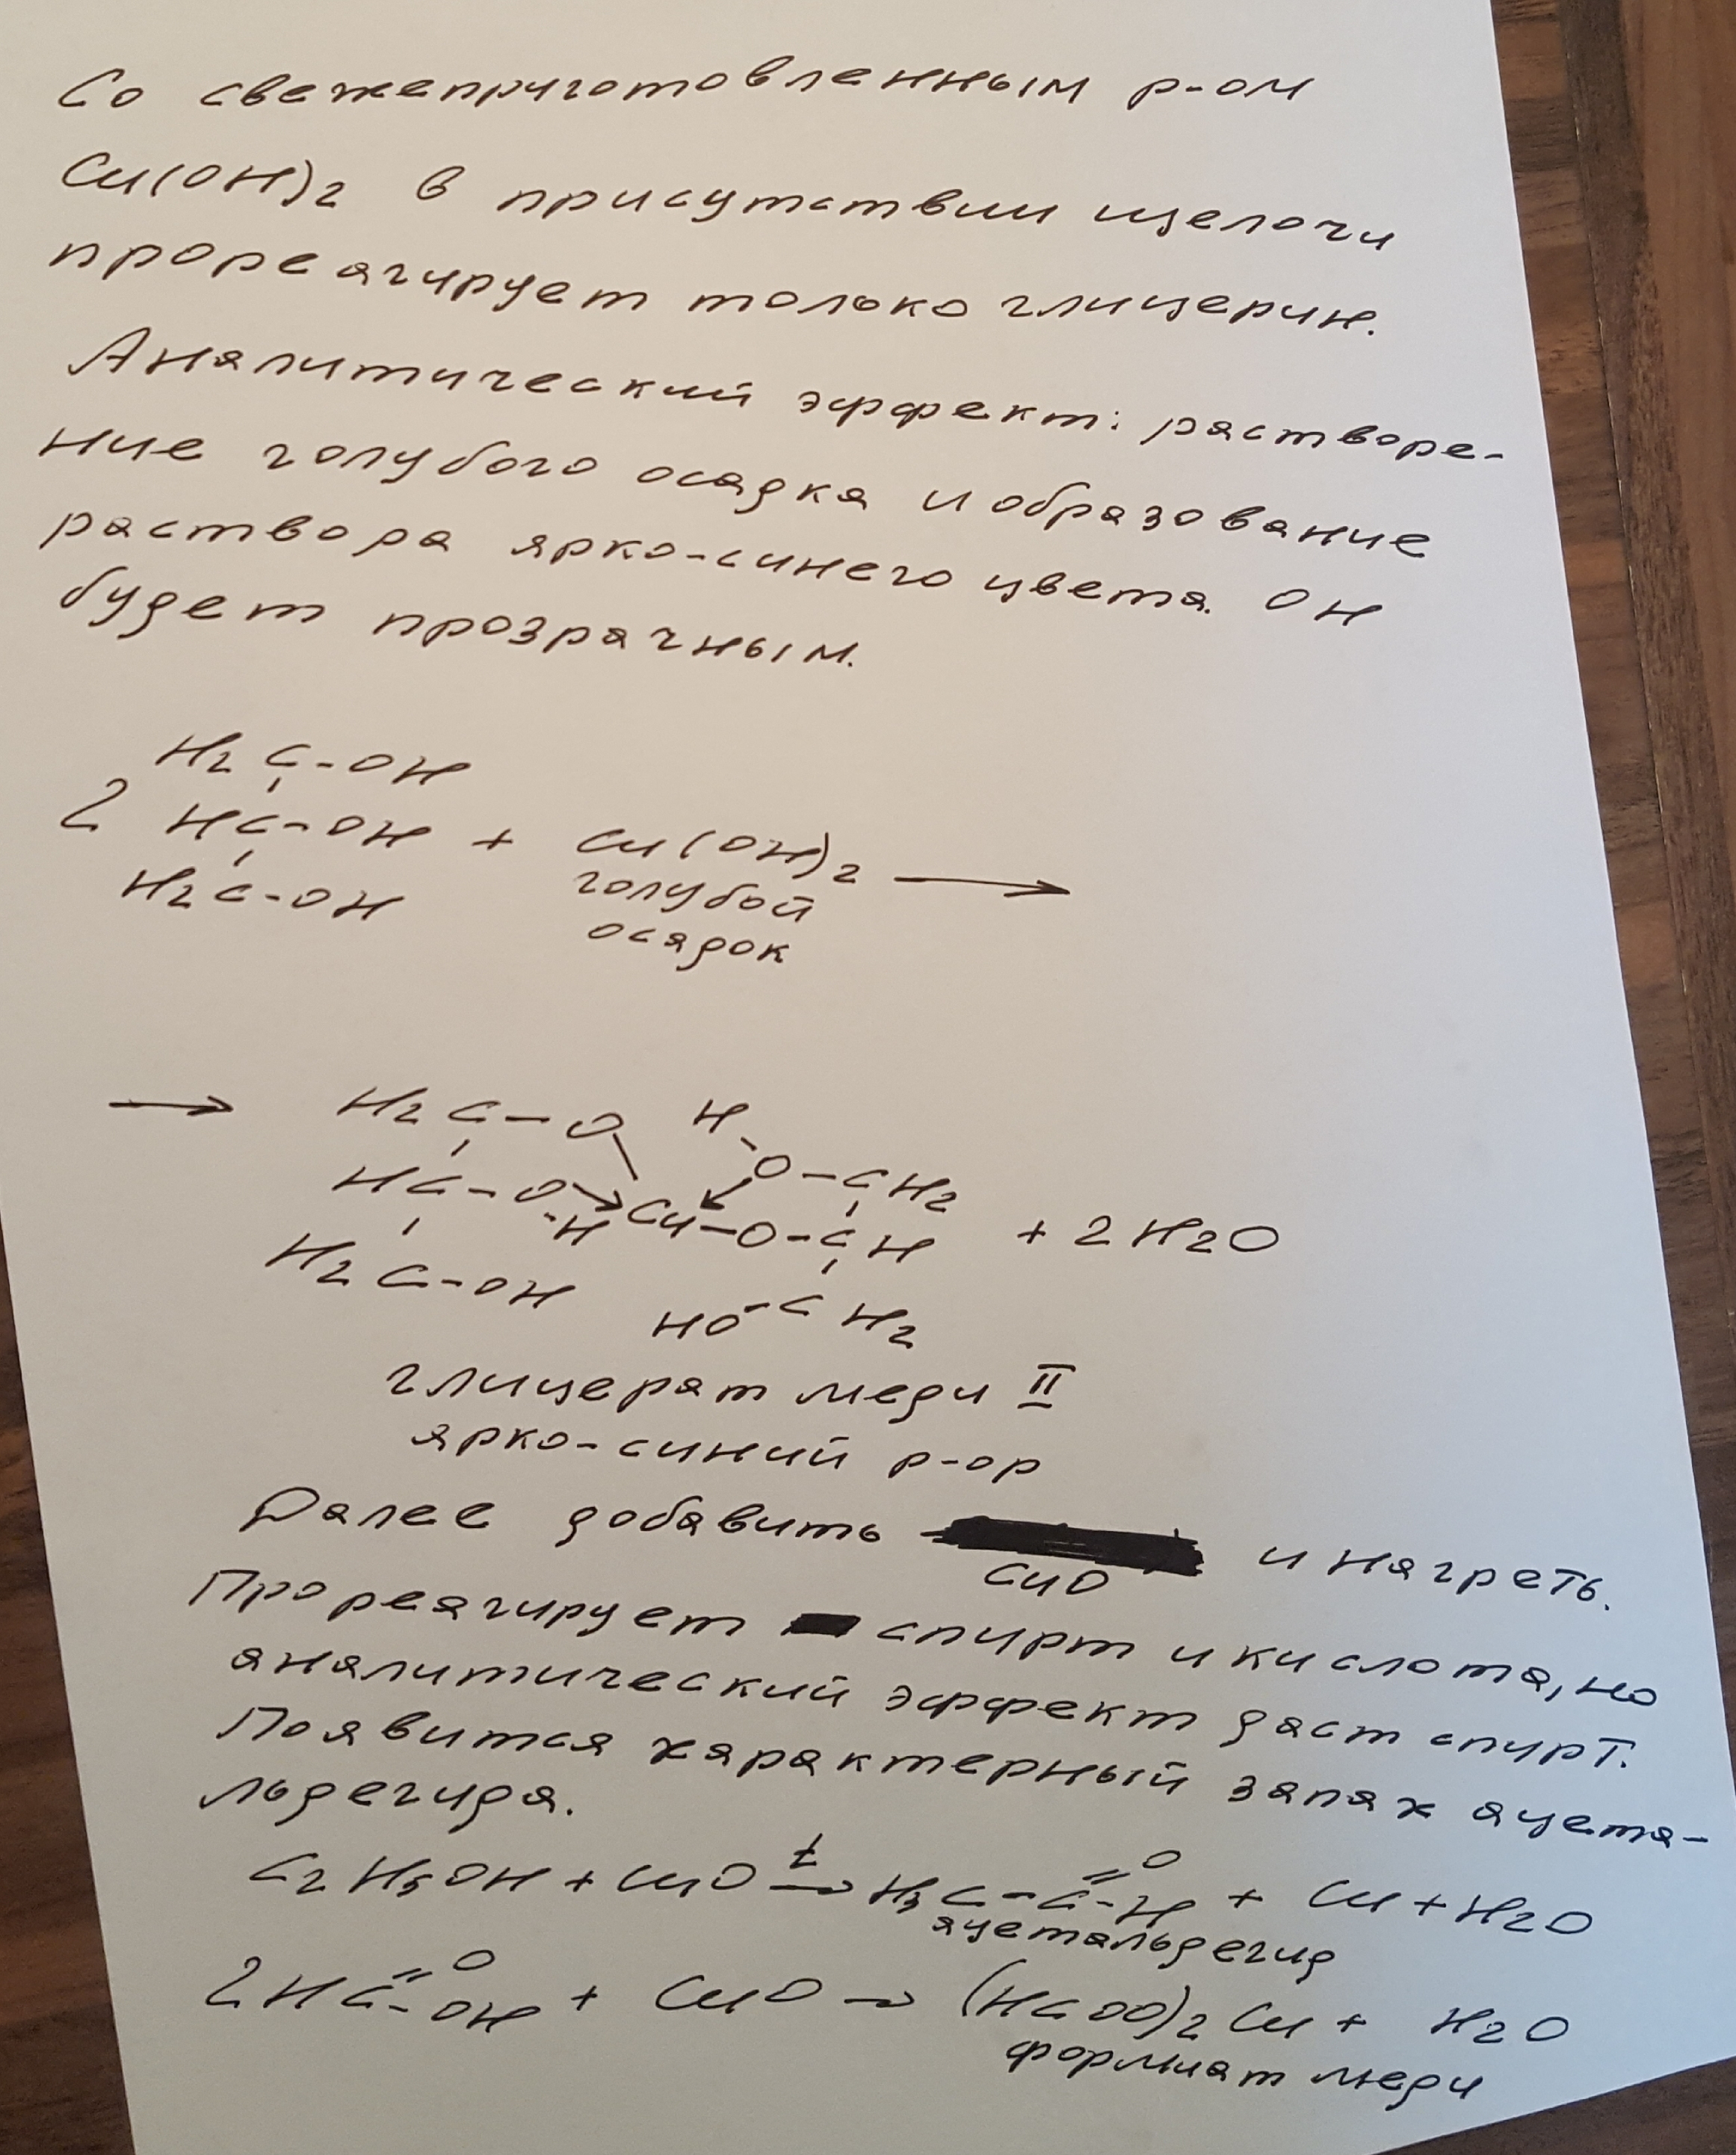 Со свежеприготовленным р-ом
Cu(OH)2 в присутствии щелочи
прореагирует только глицерин.
Аналитический эффект: растворе-
ние голубого осадка и образование
раствора ярко-синего цвета. Он
будет прозрачным.
H2C-OH
2 HC-OH + Cu(OH)2 →
H2C-OH голубой
осадок
→ H2C-O H
O-CH2
HC-O → Cu-O-CH + 2H2O
H
H2C-OH HO-CH2
глицерат меди II
ярко-синий р-ор
Далее добавить CuO и нагреть.
Прореагирует спирт и кислота, но
аналитический эффект даст спирт.
Появится характерный запах ацета-
льдегида.
C2H5OH + CuO t→ H3C-C=O-H + Cu + H2O
ацетальдегид
2HC=O-OH + CuO → (HCOO)2Cu + H2O
формиат меди